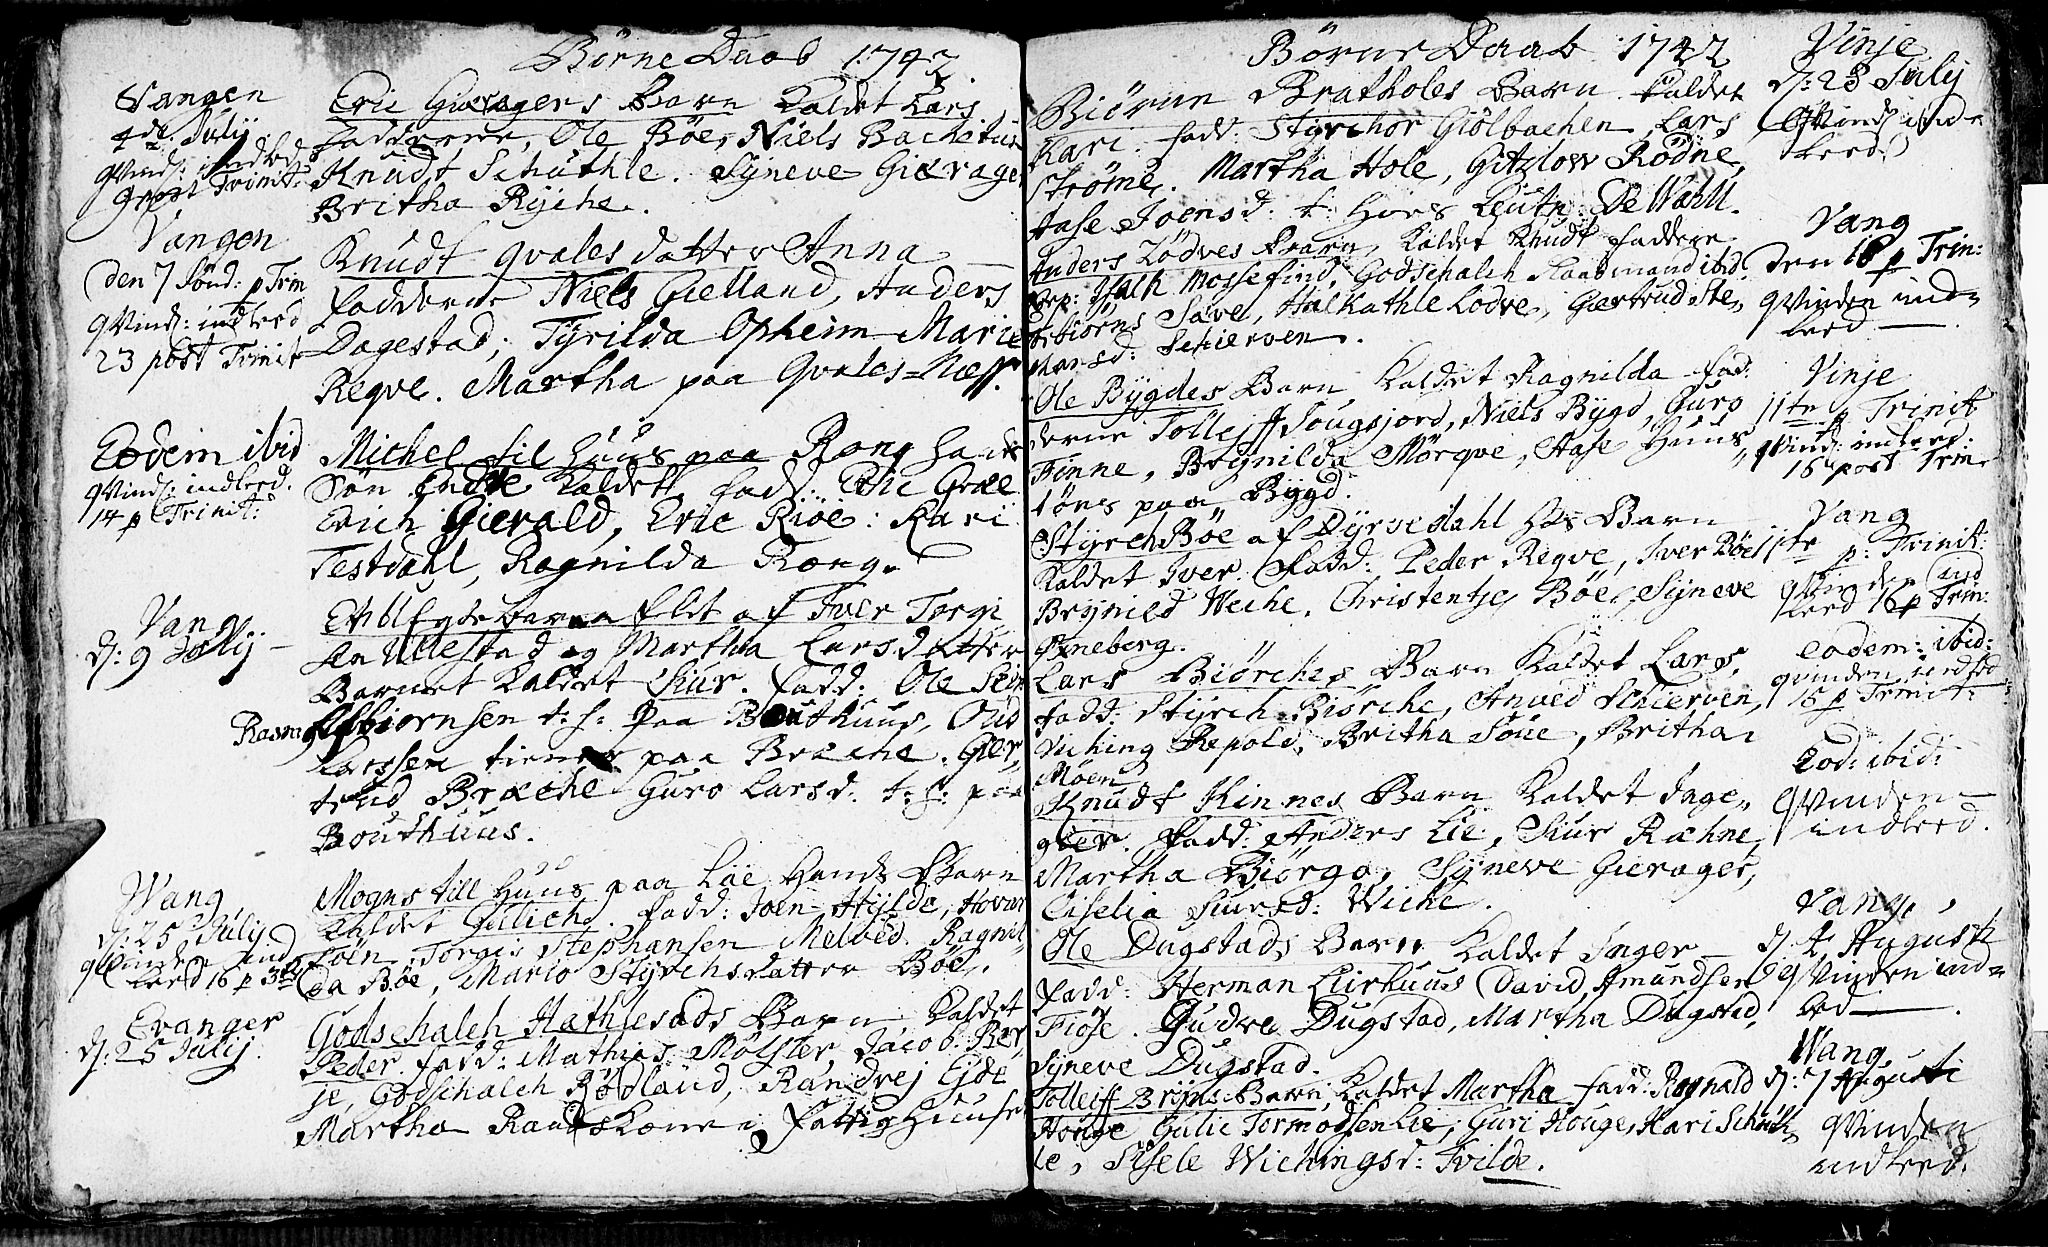 Børne Daab 1742.
Vangen
4de Julij
qvind: indled
9 post Trinit:
Eric Gieragers Barn Kaldet Lars
Fadderne, Ole Bøe, Niels Bachetun
Knudt Schuthle. Syneve Gierager
Britha Ryche.
Vangen
den 7 Sønd: p Trin
qvind: indleed
23 post Trinit
Knudt qvales datter Anna
Fadderne Niels Gielland, Anders
Dagestad, Tyrilda Opheim Marie
Reqve. Martha paa Qvales-Næss.
Eodem ibid
qvind: indleed.
14 p Trinit:
Michel til Huus paa Rong hands
Søn Kaldet fadd: Eric Græe
Erich Gierald, Eric Riøe: Kari
Testdahl, Ragnilda Rong.
Vang
d: 9 Julij
Et U Egte barn aflet af Iver Torgi
Ullestad og Martha Larsdatter
Barnet Kaldet Siur. Fadd: Ole
Rasm Asbiørnsen t: h: paa Bouthuus, Oud
Larssen tiener paa Bræche. Gier,
trud Bræche Guro Larsd: t: h: paa
Bouthuus.
Wang
d: 25 Julij
qvinden ind
leed 16 p
Mogns till Huus paa Løe Hands Barn
Kaldet Gullich. Fadd: Joen Hylde, Hovar
Tøen, Torgis Stephansen Melved. Ragnil
da Bøe, Mario Styrchsdatter Bøe.
Evanger
d: 25 Julij.
Godschalch Hathlestads Barn Kaldet
Peder. fadd: Mathias Mølster, Jacob Ber,
je, Godschalch Rødland, Randvej Eide
Martha Raudskone i Fattighuuset
Børne Daab 1742
Biørne Bratholes Barn Kaldet
Kari. fadd: Styrchor Giølbachen, Lars
Strøme. Martha Hole, Gitzlow Rødne,
Aase Joensd: t: Hoes Leutn: De Wahl.
Vinje
d: 23 Julij
Qvind: ind=
leed.
Anders Lødves Barn, Kaldet Knudt faddere
Isach Mossefind, Godschalch ibid
Save, Halkathle Lodve, Giertrud
Schierven.
Vang
den 16 p Trin:
qvinden ind=
leed —.
Ole Bygdes Barn Kaldet Ragnilda Fad:
derne Tolleiff Sougsjord, Niels Bygd, Guro
Finne, Brynilda Mørqve, Aase Huus,,
tøns paa Bygd.
Vinje
11te p Trinit
qvind: indleed:
16 post Trin
Styrch Bøe af Dyrvedahl Hs Barn
Kaldet Iver. Fadd: Peder Reqve, Iver Bøe
Brynild Weche, Christentse Bøe, Syneve
Røneberg.
Vang
11te p: Trinit:
qvinden ind
leed 16 p Trin:
Lars Biørches Barn Kaldet Lars,
fadd: Styrch Biørche, Anved Schierven,
Viching Repold, Britha Søue, Britha
Møen
eodem: ibid:
qvinden indled
15 p Trinit:
Knudt Kinnes Barn Kaldet Inge,,
gier. Fadd: Anders Lie, Siur Ræhne,
Martha Biørgo, Syneve Gierager,
Ciselia Siursd: Wiche.
Eod: ibid:
Qvinden
indleed.
Ole Dugstads Barn Kaldet Inger
Fadd: Herman Lirhuus David Amundsen
Fiøse. Gudve Dugstad, Martha Dugstad,
Syneve Dugstad.
Vang
d: 4 Augusti
Qvinden ind=
led —.
Tolleiff Bryns Barn, Kaldet Martha fadd: Ragnald
Houge Gulic Tormodsen Lie, Guri Houge, Kari Schuth,
le, Sisele Wichingsd: Tvilde.
Wang
d: 7 Augusti
Qvinden
indleed.